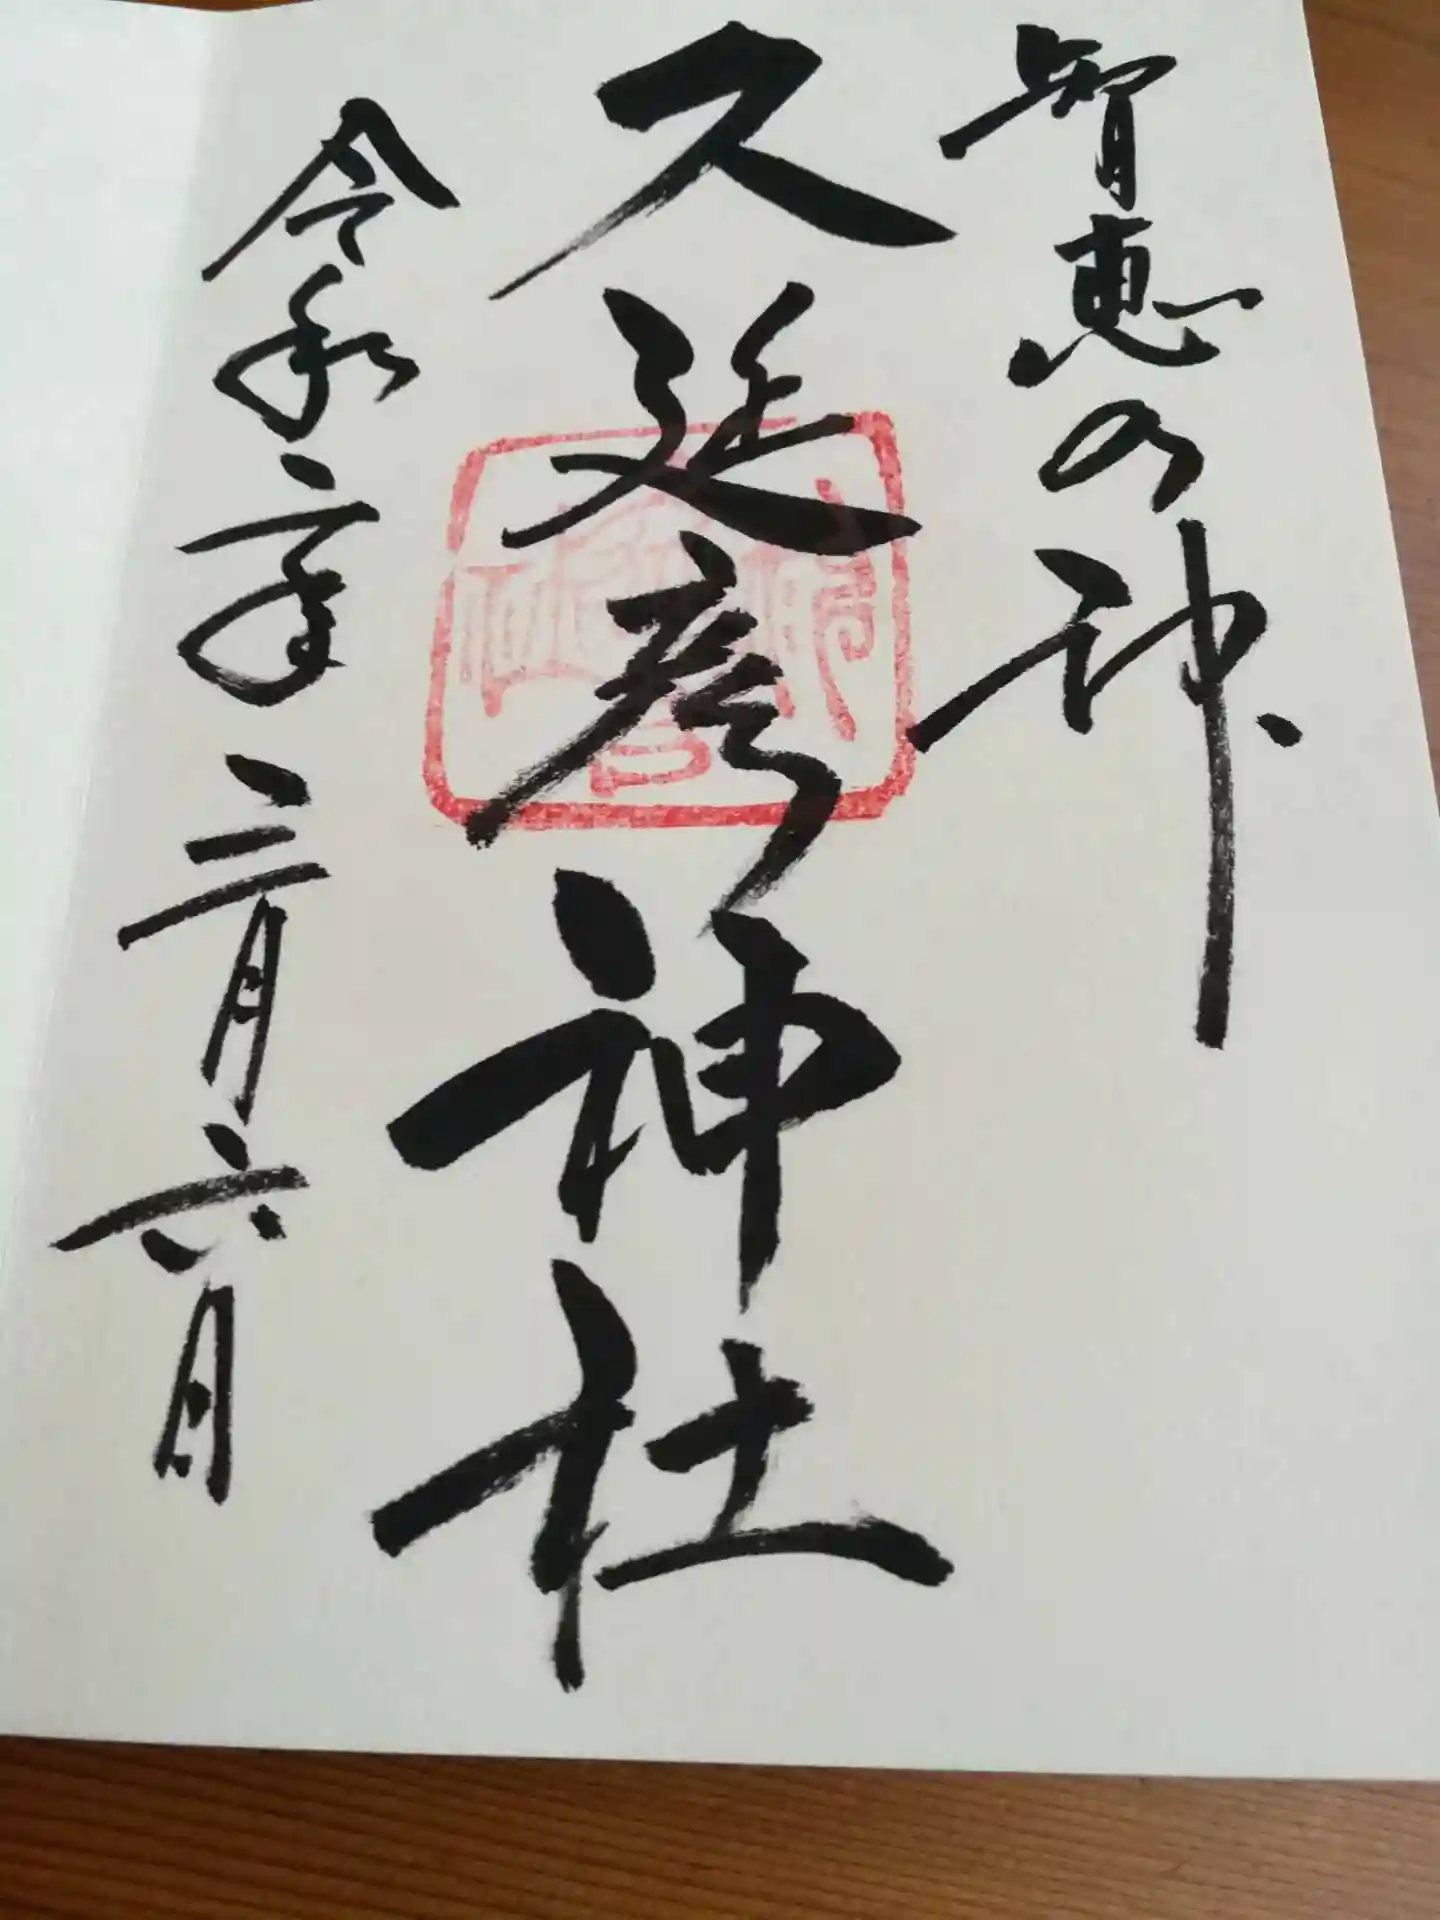 智恵の神
久延彦神社
令和二年三月六日